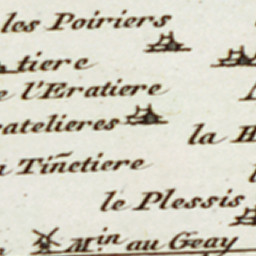 les Poiriers
tiere
l'Eratiere
atelieres
la H
Tinctiere
le Plessis
Min au Geay